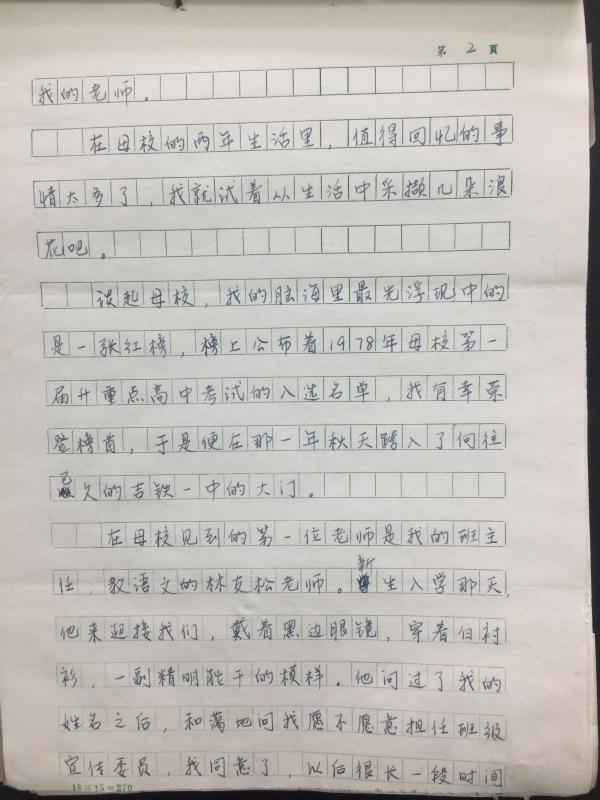 第 2 頁
我的老师。
在母校的两年生活里，值得回忆的事
情太多了，我就试着从生活中采撷几朵浪
花吧。
谈起母校，我的脑海里最先浮现中的
是一张红榜，榜上公布着1978年母校第一
届升重点高中考试的入选名单，我有幸荣
登榜首，于是便在那一年秋天踏入了向往
已久的吉铁一中的大门。
在母校见到的第一位老师是我的班主
任，教语文的林友松老师。新生入学那天，
他来迎接我们，戴着黑边眼镜，穿着白衬
衫，一副精明能干的模样。他问过了我的
姓名之后，和蔼地问我愿不愿意担任班级
宣传委员，我同意了，以后很长一段时间
18×15=270